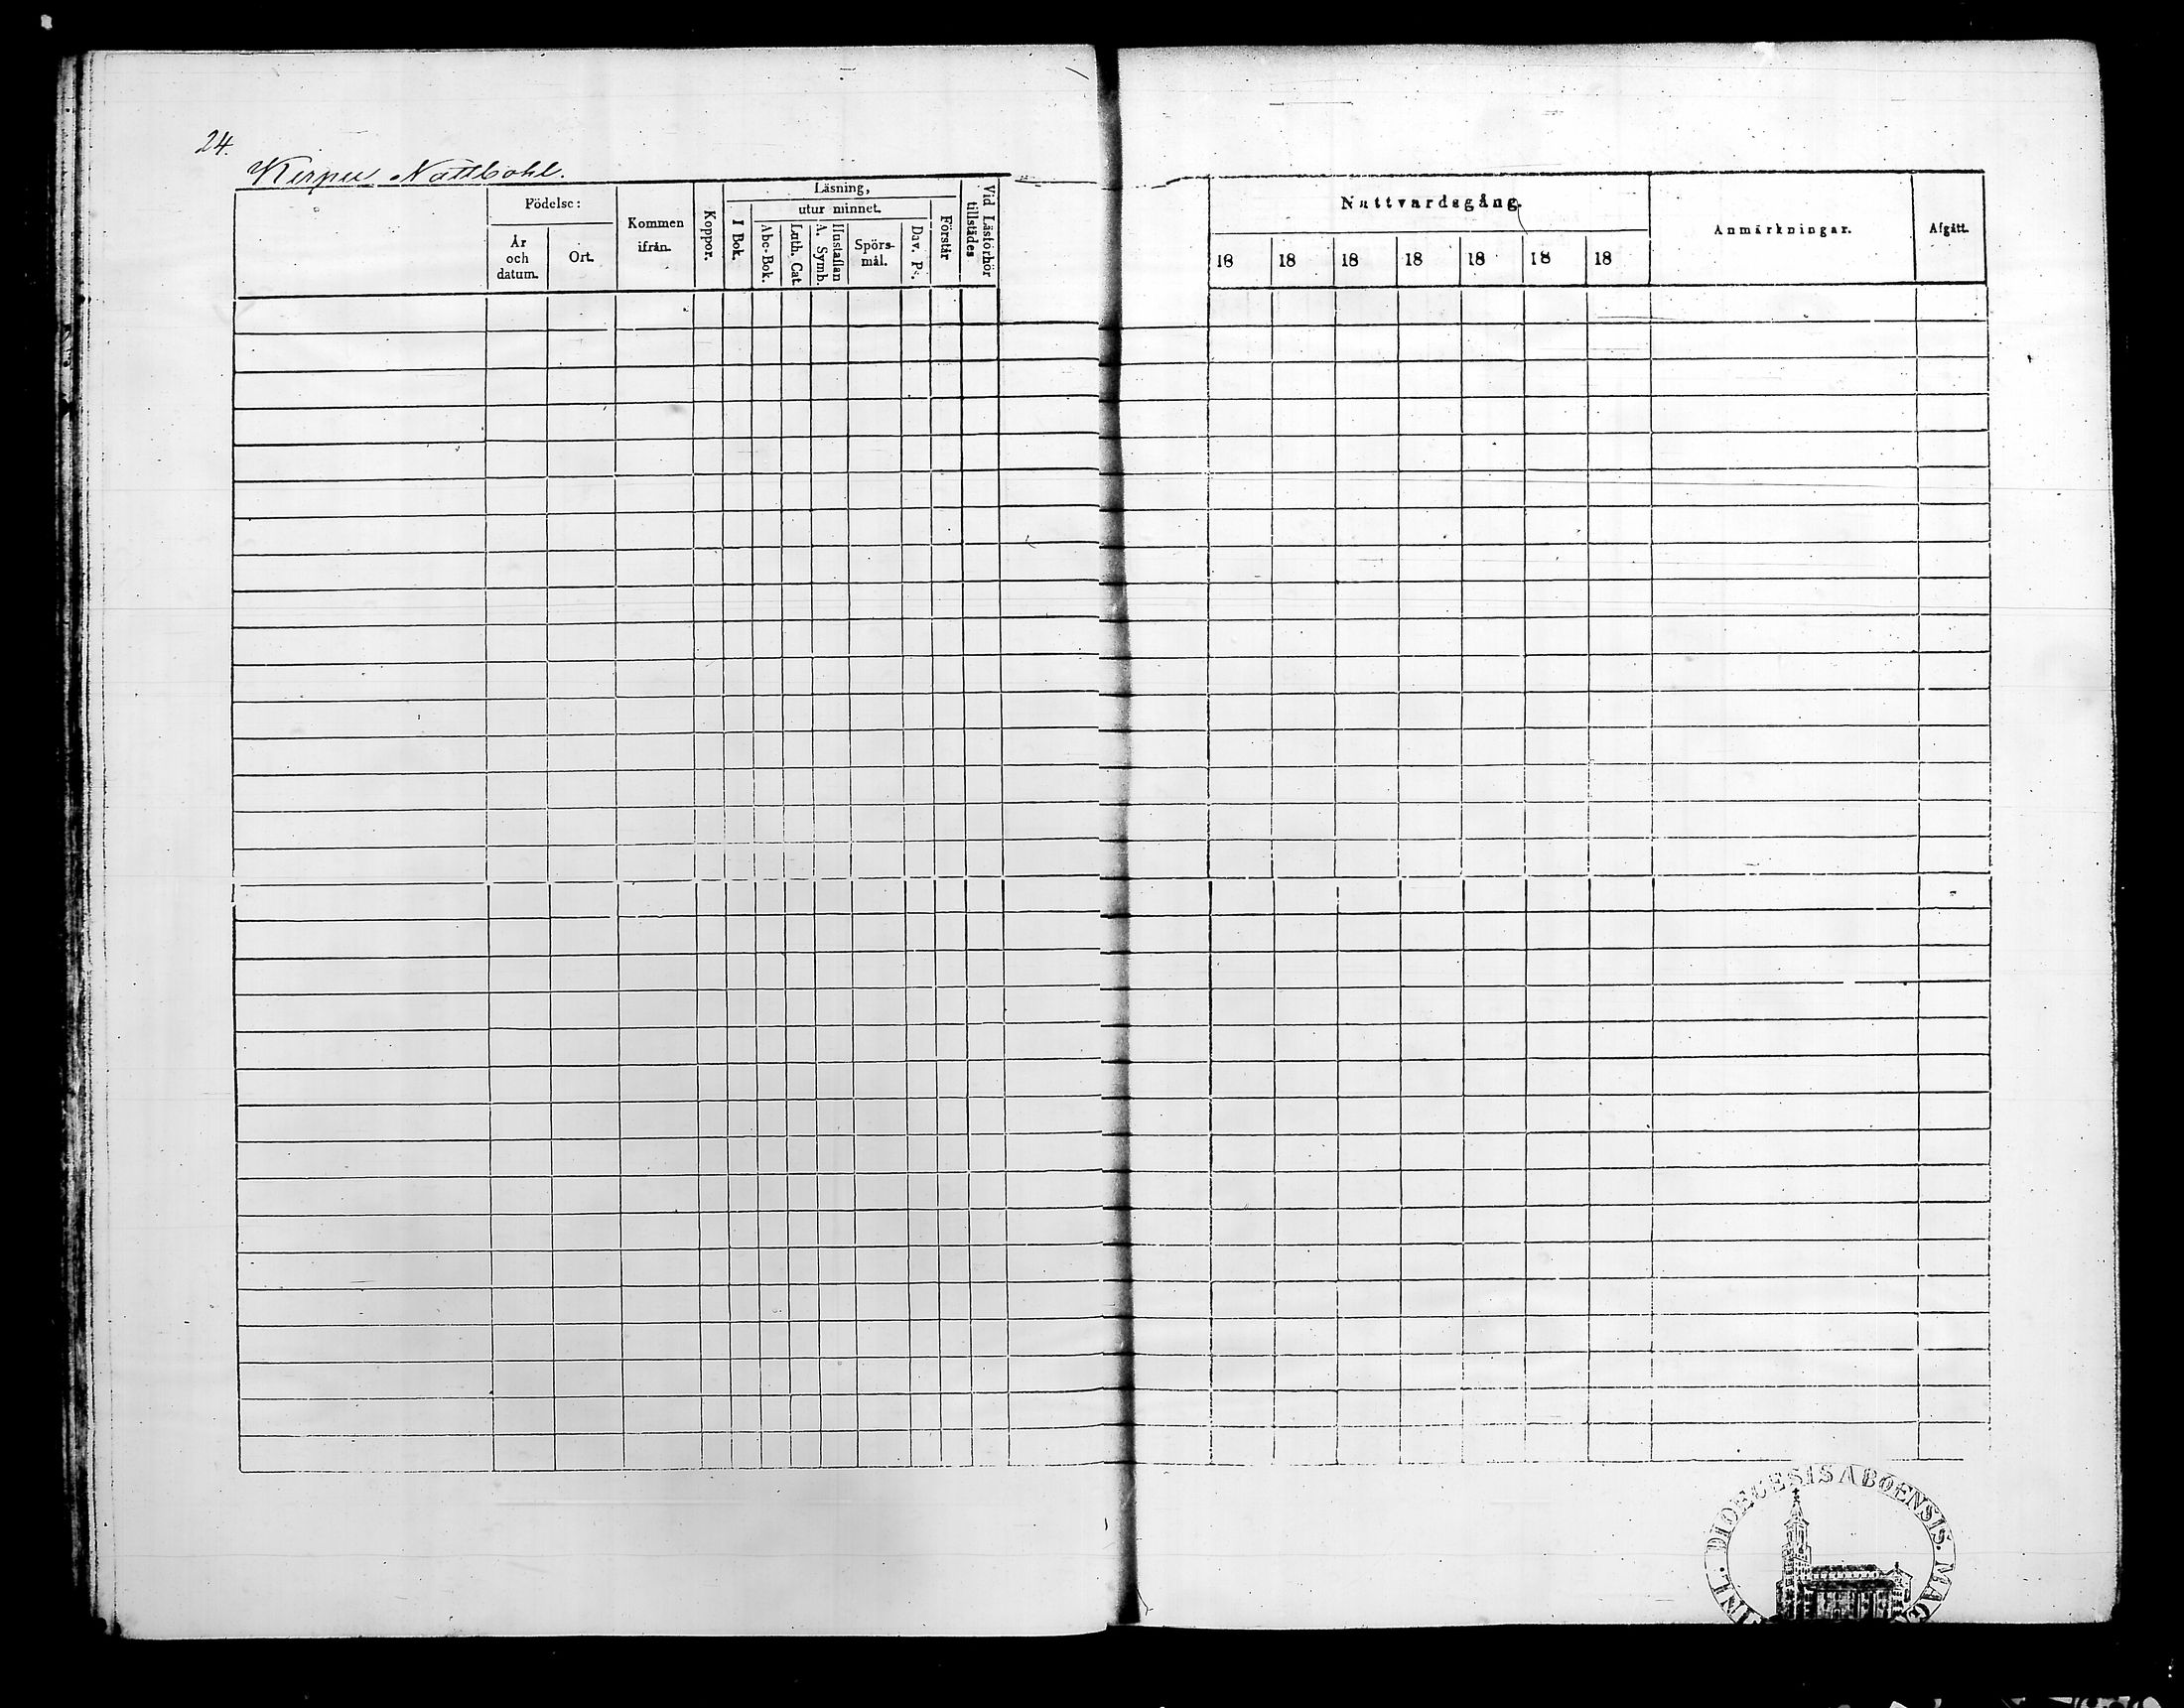 24.
Nattbohl.
Födelse:
År
och
datum.
Ort.
Kommen
ifrån.
Koppor.
Läsning,
utur minnet.
I Bok.
Abc-Bok.
Luth. Cat.
Hustaflan
A. Symb.
Spörs-
mål.
Dav. Ps.
Förstår
Vid Läsförhör
tillstädes
Nattvardsgång.
18 18 18 18 18 18 18
Anmärkningar.
Afgått.
DIOECESIS ABOENSIS. MAG
FINL.